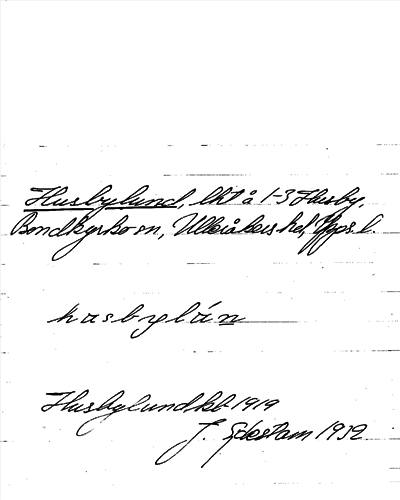 Husbylund, lht å 1-3 Husby,
Bondkyrko sn, Ulleråkers hd, Upps. l.
hasbylán
Husbylund kb 1919
J. Edestam 1932